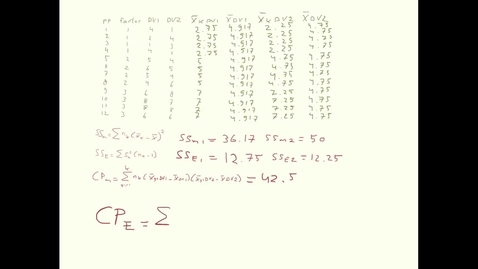 PP factor DV1 DV2 X̄k DV1 X̄ DV1 X̄k DV2 X̄ DV2
1 1 4 1 2.75 4.917 2.25 4.75
2 1 4 2.75 4.917 2.25 4.75
3 1 2.75 4.917 2.25 4.75
4 1 2.75 4.917 2.25 4.75
5 2 5 4.917 4.75 4.75
6 2 5 4.917 4.75 4.75
7 2 5 4.917 4.75 4.75
8 2 5 4.917 4.75 4.75
9 3 6 8 7 4.917 7.25 4.75
10 3 8 7 4.917 7.25 4.75
11 3 7 4.917 7.25 4.75
12 3 6 6 7 4.917 7.25 4.75
SSm=∑nk(x̄k-x̄)² SSm1 = 36.17 SSm2 = 50
SSE=∑sk²(nk-1) SSE1 = 12.75 SSE2 = 12.25
CPm=∑nk(x̄k,DV1-x̄DV1)(x̄k,DV2-x̄DV2) = 42.5
CPE = ∑